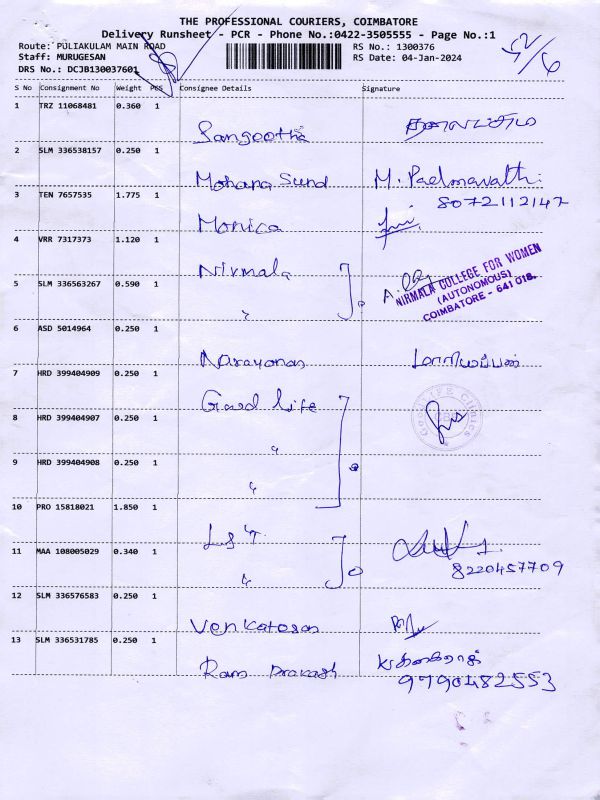 THE PROFESSIONAL COURIERS, COIMBATORE
Delivery Runsheet - PCR - Phone No.:0422-3505555 - Page No.:1
Route: PULIAKULAM MAIN ROAD
RS No.: 1300376
Staff: MURUGESAN
RS Date: 04-Jan-2024
DRS No.: DCJB130037601
52/6
S No Consignment No Weight PCS Consignee Details Signature
1 TRZ 11068481 0.360 1
Sangeetha
2 SLM 336538157 0.250 1
Mohana Sund M. Padmavathi
3 TEN 7657535 1.775 1 8072112147
Monica
4 VRR 7317373 1.120 1
Nirmala
5 SLM 336563267 0.590 1
"
NIRMALA COLLEGE FOR WOMEN
(AUTONOMOUS)
COIMBATORE - 641 018.
6 ASD 5014964 0.250 1
Narayanan மாரியப்பன்
7 HRD 399404909 0.250 1
Good life
8 HRD 399404907 0.250 1
"
9 HRD 399404908 0.250 1
"
10 PRO 15818021 1.850 1
L&T
11 MAA 108005029 0.340 1
"
8220457709
12 SLM 336576583 0.250 1
Venkatesan
13 SLM 336531785 0.250 1
Ram Prakash
9790482553